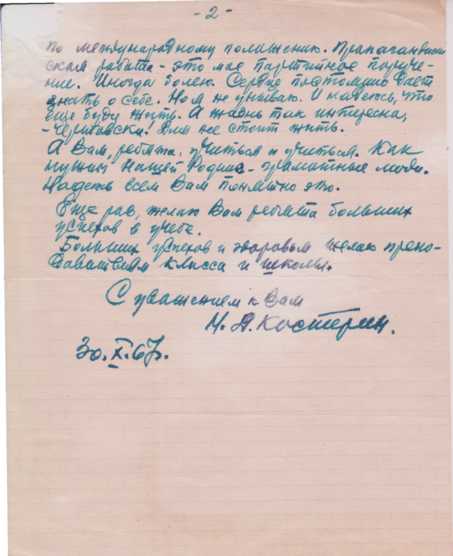 - 2 -
по международному положению. Пропагандист
ская работа - это мое партийное поруче-
ние. Иногда болею. Сердце постоянно дает
знать о себе. Но я не унываю. И надеюсь, что
еще буду жить. А жизнь так интересна,
чертовски! Для нее стоит жить.
А Вам, ребята, учиться и учиться. Как
нужны нашей Родине - грамотные люди.
Надеюсь всем Вам понятно это.
Еще раз, желаю Вам ребята больших
успехов в учебе.
Больших успехов и здоровья желаю препо-
давателям класса и школы.
С уважением к Вам
Н. А. Костерин.
30.X.67г.